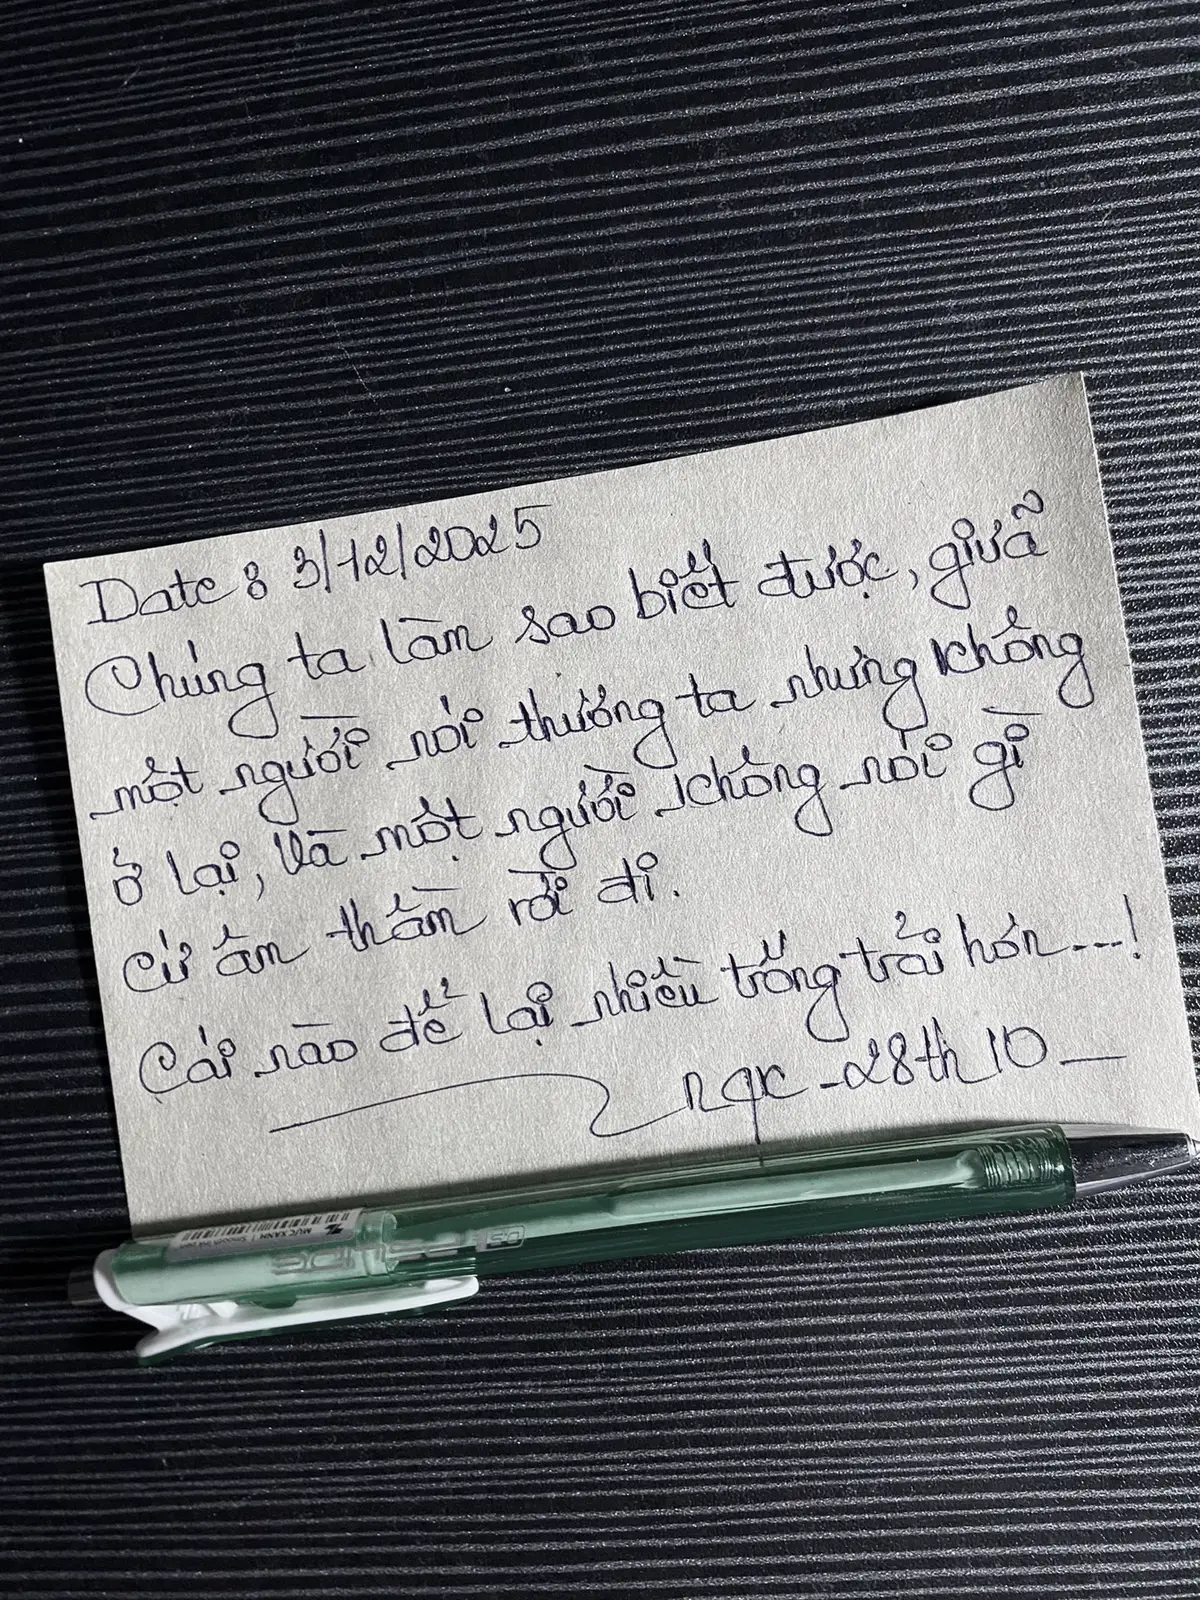 Date : 3/12/2025
Chúng ta làm sao biết được, giữa
một người nói thương ta nhưng không
ở lại, và một người không nói gì
cứ âm thầm rời đi.
Cái nào để lại nhiều trống trải hơn....!
nqx - 28th10 —
MỰC XANH